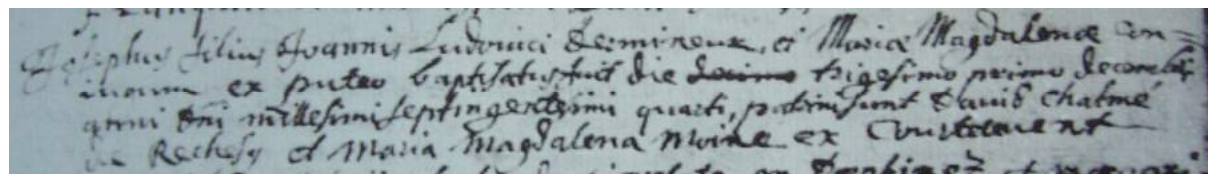 Josephus filius Joannis Ludovici Desmireux, et Mariæ Magdalenæ con=
iugum ex puteo baptisatus fuit die decimo trigesimo primo decembris
anni dni millesimi septingentesimi quarti, patrini sunt David chalmé
de Rechesy et Maria Magdalena Moine ex Courtavent